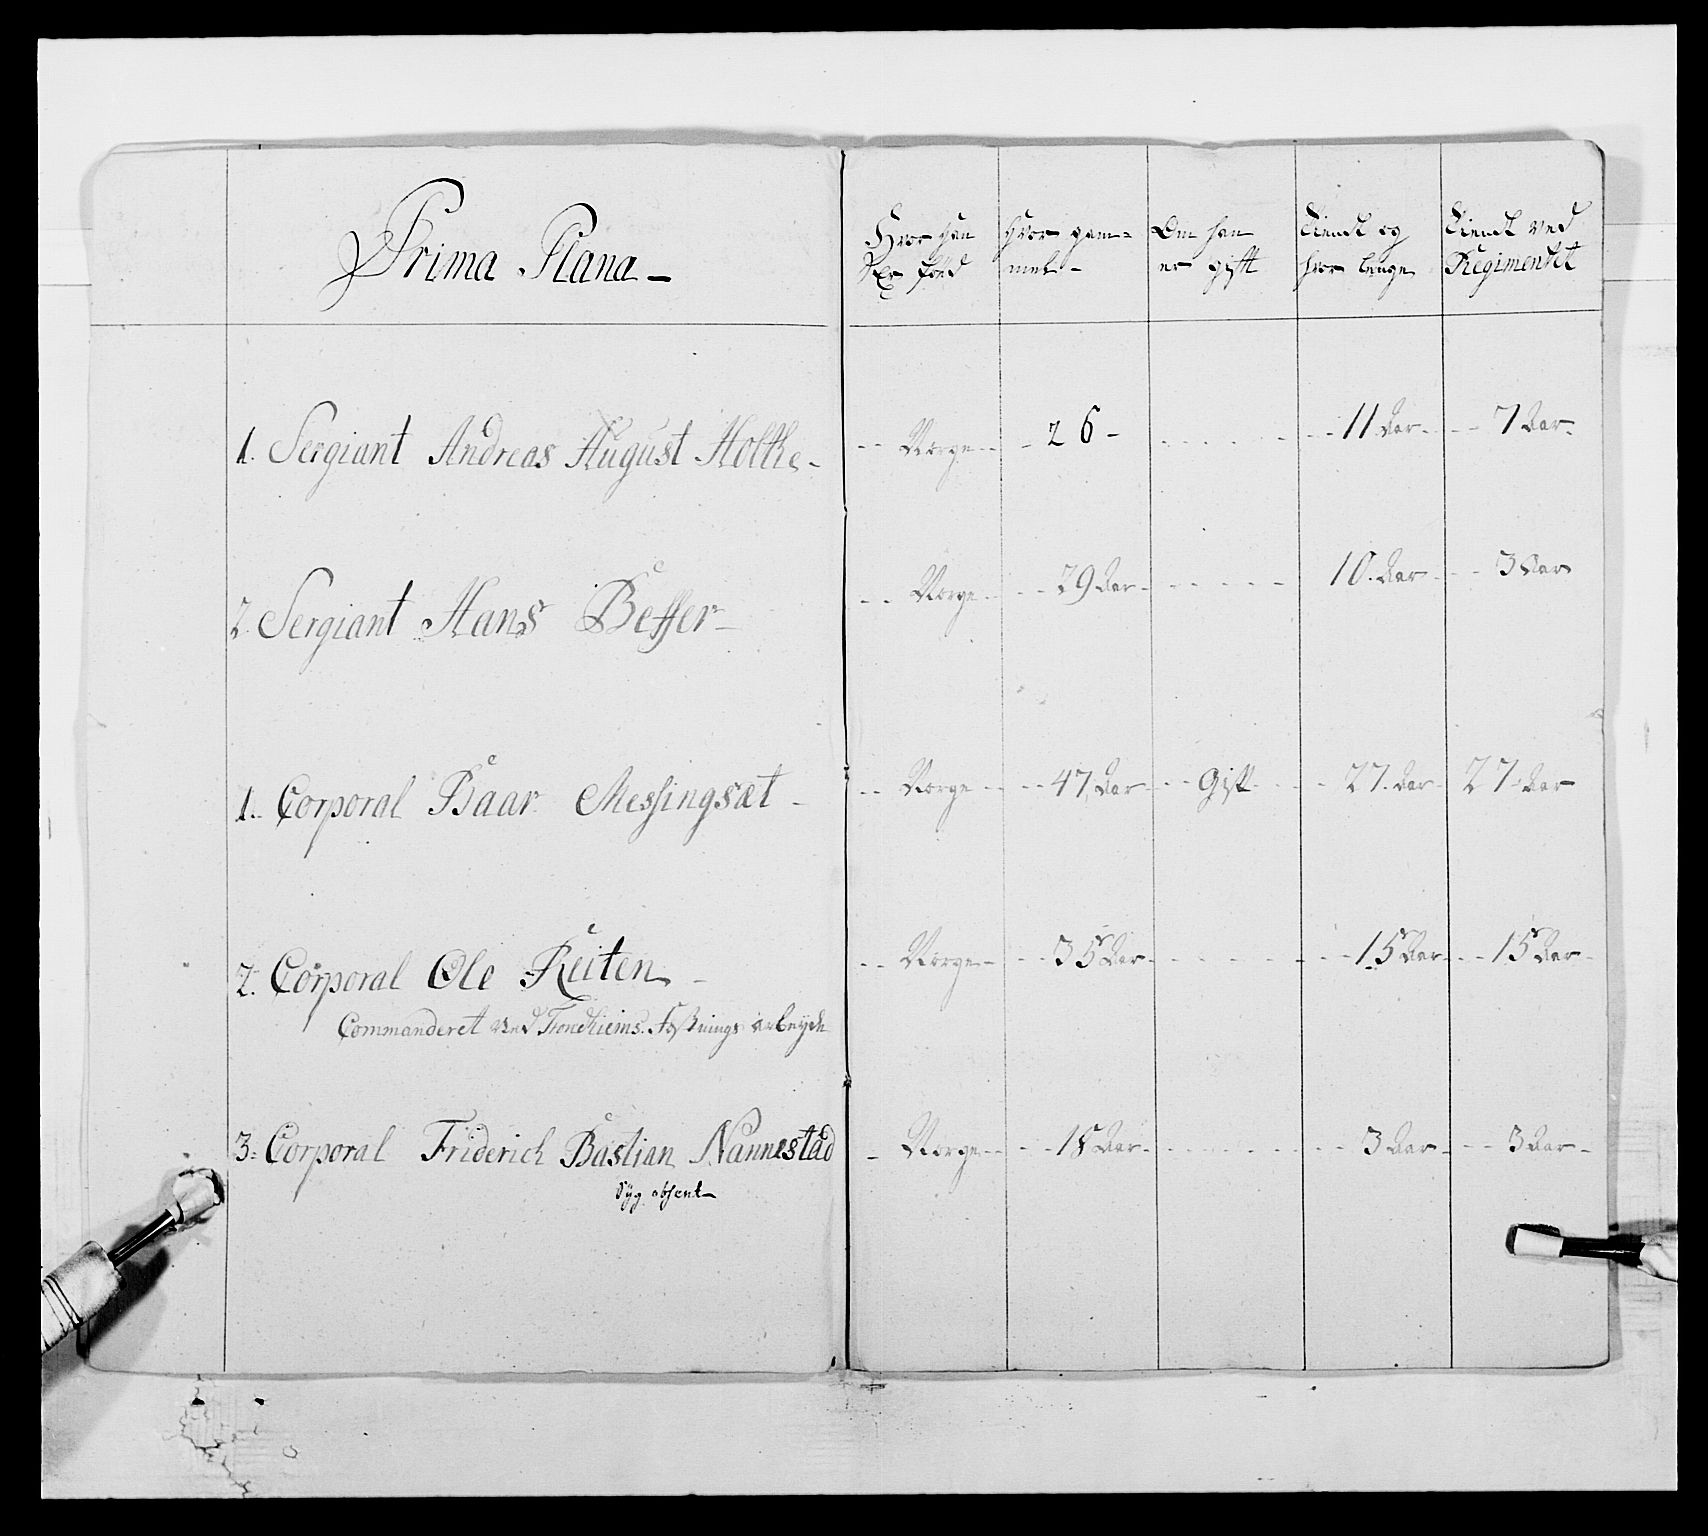 Prima Plana -
Hvor han Er föed
Hvor gam-mel -
Om han er gift
Tient og hvor lenge
Tient ved Regimentet
1. Sergiant Andreas August Holtke - Norge - 26 - 11 Aar - 7 Aar
2. Sergiant Hans Besser - Norge - 29 Aar - 10. Aar - 3 Aar
1. Corporal Baar Messingsæt - Norge - 47 Aar - Gift - 27. Aar 27 Aar
2. Corporal Ole Reiten - Norge - 35 Aar - 15 Aar - 15 Aar
Commanderet ved Trondhiems Festnings arbeyde
3. Corporal Friderich Bastian Nannestad - Norge - 18 Aar - 3 Aar - 3 Aar
Syg absent -